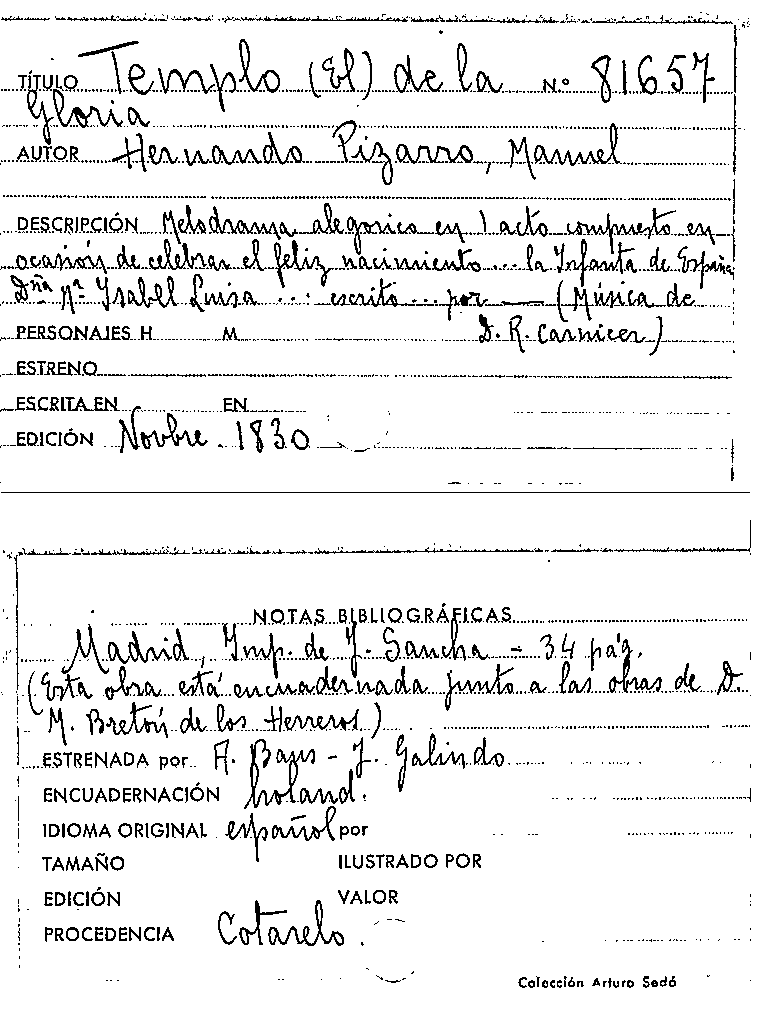 TÍTULO Templo (El) de la Nº 81657
Gloria
AUTOR Hernando Pizarro, Manuel
DESCRIPCIÓN Melodrama alegorico en 1 acto compuesto en
ocasión de celebrar el feliz nacimiento ... la Infanta de España
Dñª Mª Ysabel Luisa ...: escrito ... por — (Música de
PERSONAJES H M D. R. Carnicer)
ESTRENO
ESCRITA EN EN
EDICIÓN Novbre. 1830
NOTAS BIBLIOGRÁFICAS
Madrid, Imp. de J. Sancha - 34 pág.
(Esta obra está encuadernada junto a las obras de D.
M. Bretón de los Herreros)
ESTRENADA por A. Baus - J. Galindo
ENCUADERNACIÓN holand.
IDIOMA ORIGINAL español por
TAMAÑO ILUSTRADO POR
EDICIÓN VALOR
PROCEDENCIA Cotarelo.
Colección Arturo Sedó